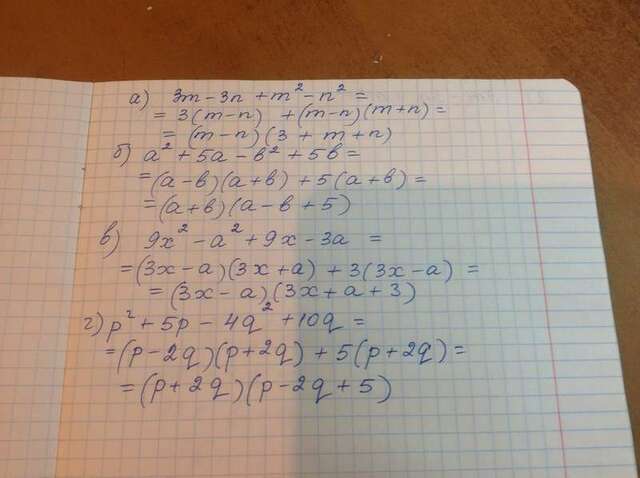 а) 3m - 3n + m² - n² =
= 3(m - n) + (m - n)(m + n) =
= (m - n)(3 + m + n)
б) a² + 5a - b² + 5b =
= (a - b)(a + b) + 5(a + b) =
= (a + b)(a - b + 5)
в) 9x² - a² + 9x - 3a =
= (3x - a)(3x + a) + 3(3x - a) =
= (3x - a)(3x + a + 3)
г) p² + 5p - 4q² + 10q =
= (p - 2q)(p + 2q) + 5(p + 2q) =
= (p + 2q)(p - 2q + 5)